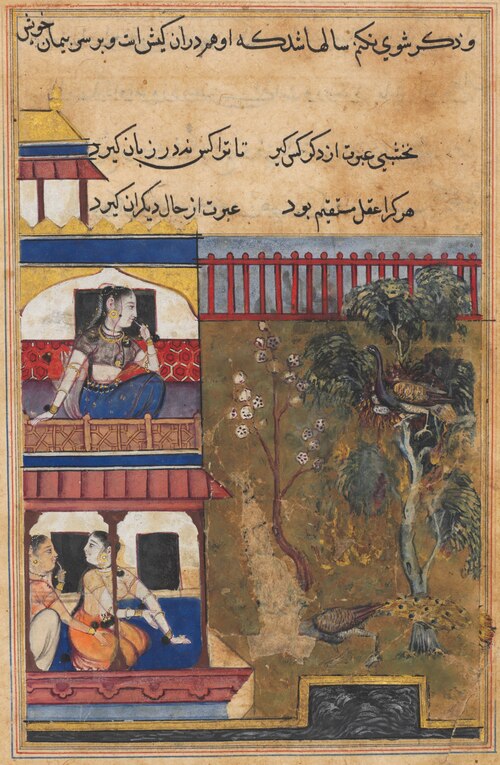 و ذکر شوی نکنم سالها شد که او هم در آن کیش است و بر سر پیمان خویش
نخشبی عبرت از دکر کس کیر تا ترا کس نه در زبان کیرد
هر کرا عقل مستقیم بود عبرت از حال دیگران کیرد